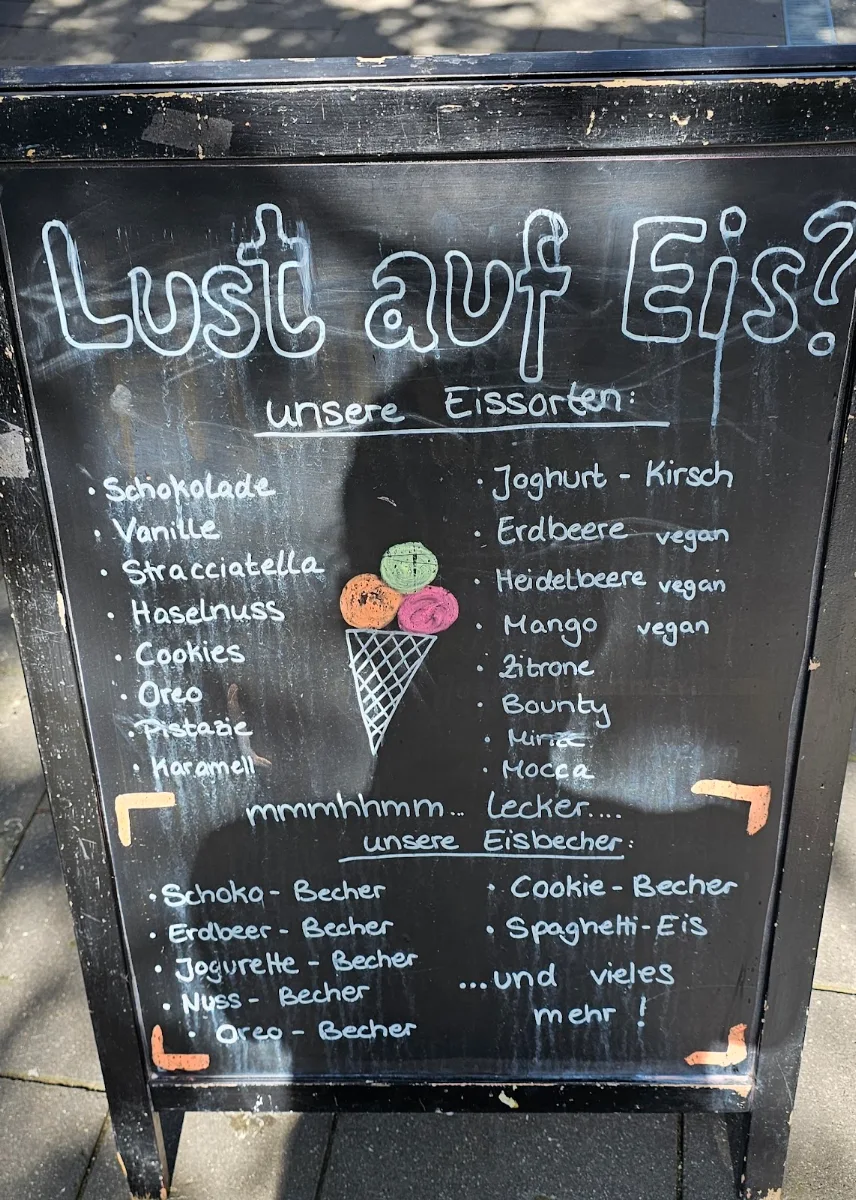 Lust auf Eis?
unsere Eissorten:
• Schokolade
• Vanille
• Stracciatella
• Haselnuss
• Cookies
• Oreo
• Pistazie
• Karamell
• Joghurt - Kirsch
• Erdbeere vegan
• Heidelbeere vegan
• Mango vegan
• Zitrone
• Bounty
• Minze
• Mocca
mmmhhmm... lecker....
unsere Eisbecher:
• Schoko - Becher
• Erdbeer - Becher
• Jogurette - Becher
• Nuss - Becher
• Oreo - Becher
• Cookie - Becher
• Spaghetti - Eis
...und vieles
mehr !